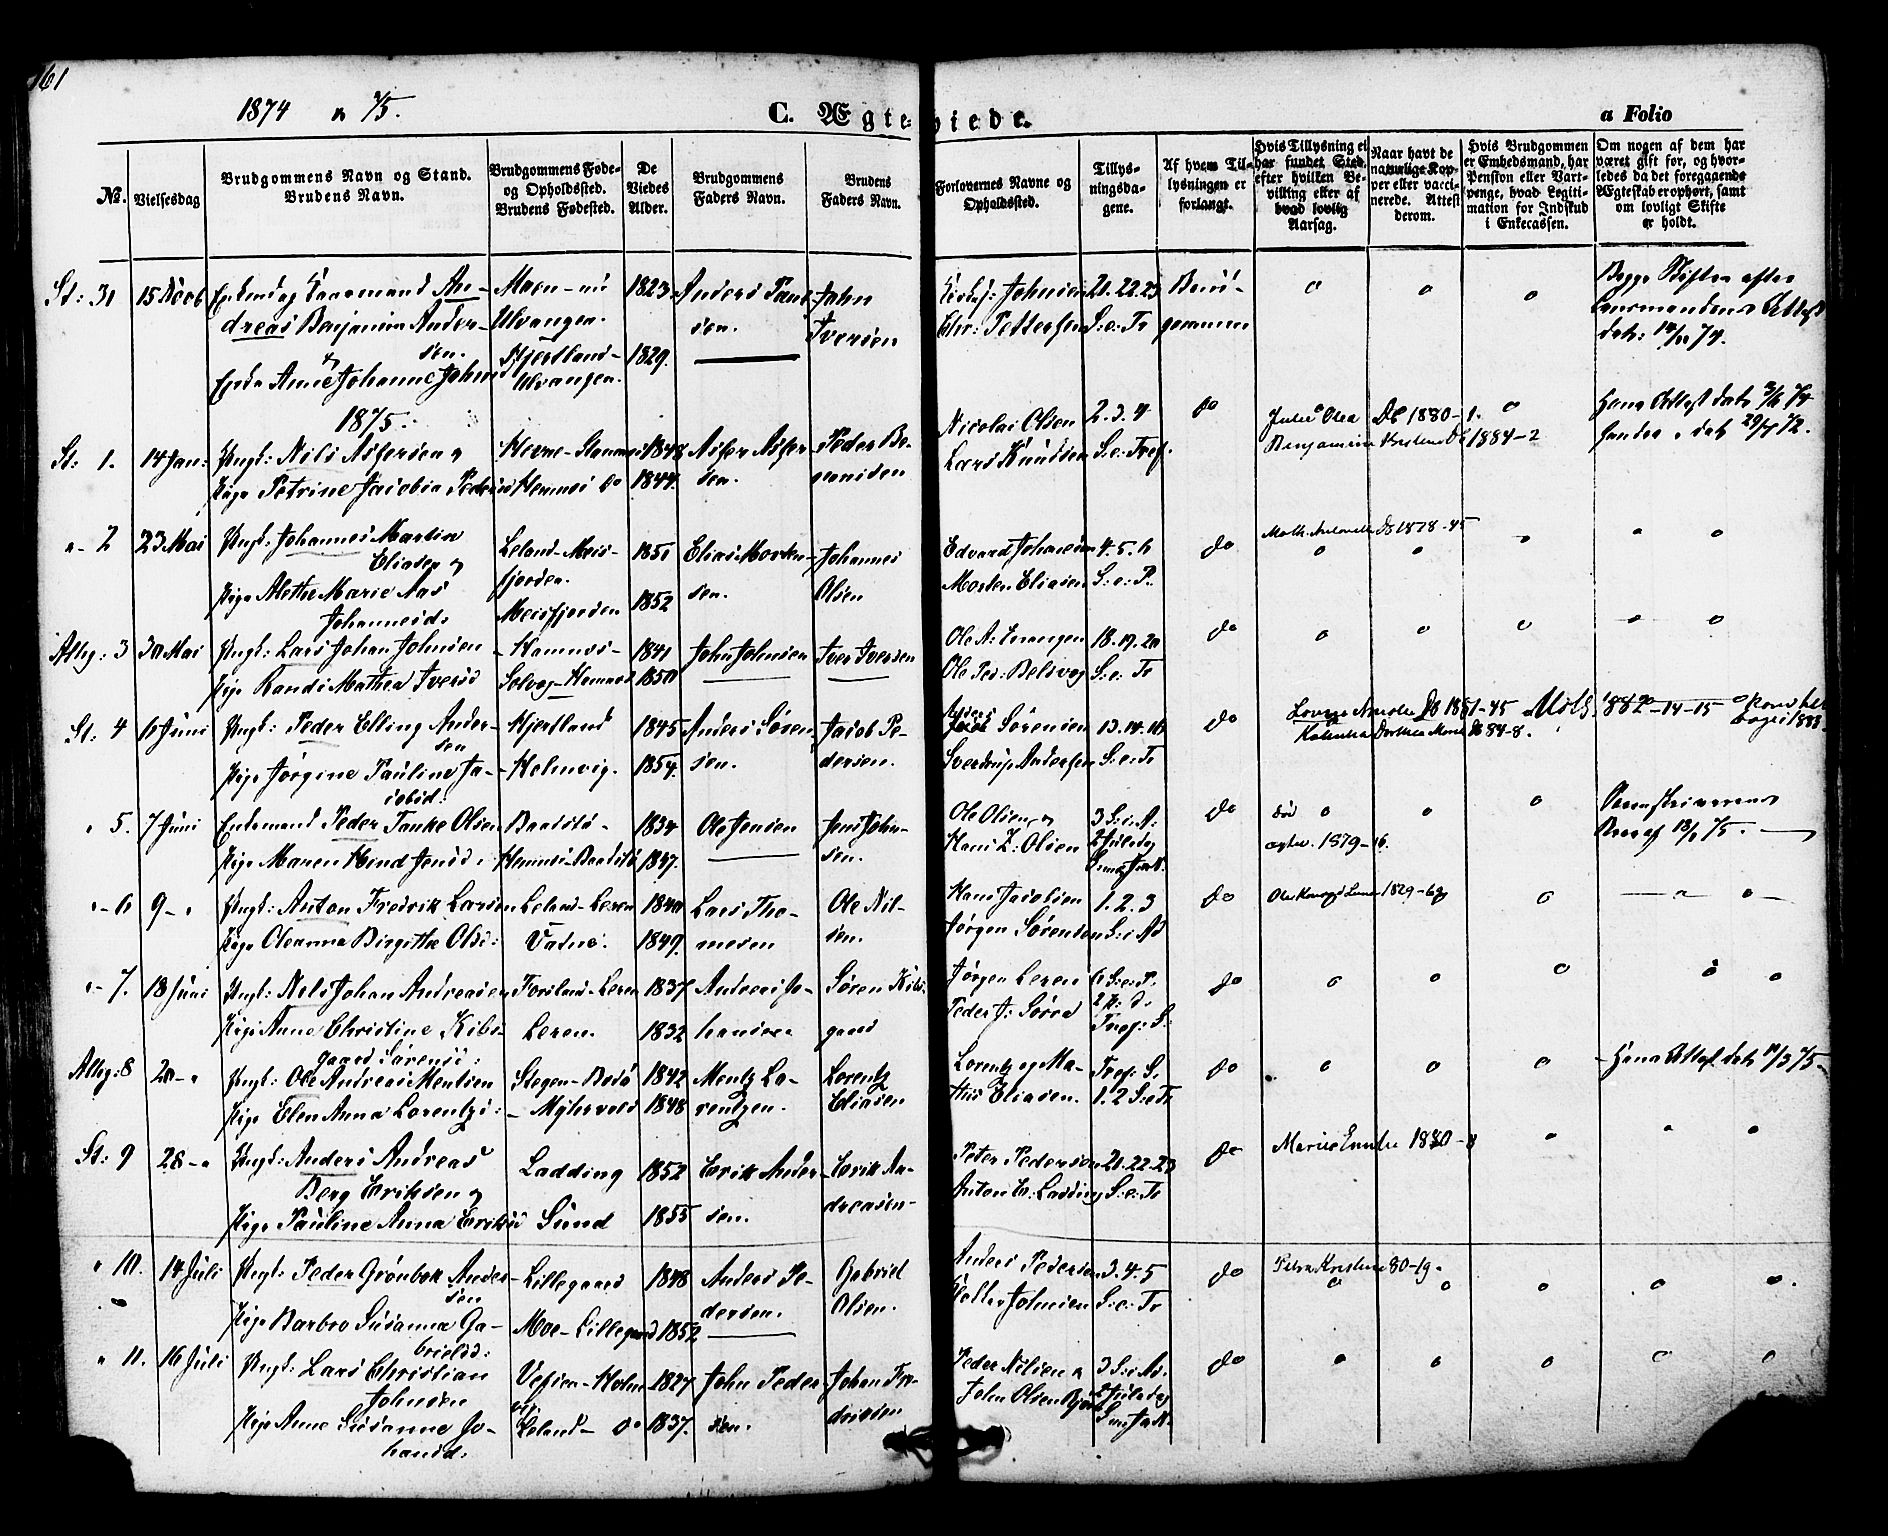 161
1874 & 75.
C. Ægteviede.
a Folio
No.
Vielsesdag
Brudgommens Navn og Stand.
Brudens Navn.
Brudgommens Føde-
og Opholdssted.
Brudens Fødested.
De
Viedes
Alder.
Brudgommens
Faders Navn.
Brudens
Faders Navn.
Forlovernes Navne og
Opholdssted.
Tillys-
ningsda-
gene.
Af hvem Til-
lysningen er
forlangt.
Hvis Tillysning ei
har fundet Sted,
efter hvilken Be-
villing eller af
hvad lovlig
Aarsag.
Naar havt de
naturlige Kop-
per eller vacci-
nerede. Attest
derom.
Hvis Brudgommen
er Embedsmand, har
Pension eller Vart-
penge, hvad Legiti-
mation for Indskud
i Enkecassen.
Om nogen af dem har
været gift før, og hvor-
ledes da det foregaaende
Ægteskab er ophørt, samt
om lovligt Skifte
er holdt.
St: 31 15 Novb
Enkemd og Gaarmand An-
dreas Benjamin Ander-
sen. &
Enke Anne Johanne Johns
Maen-nu
Ulvangen.
Hjertland-
Ulvangen.
1823
1829.
Anders Paul
sen.
John
Iversen
Johnsen
Chr: Pettersen
21.22.23
S: e: Tr
Brud-
gommen
o o o
Begge Skifter efter
Lensmandens Attest
dat: 14/11 74.
1875.
St: 1. 14 Jan:
Ungk: Nils Asfersen &
Pige Petrine Jacobia Peders
Hemnes do
1848
1844.
Asfer Asfer
sen.
Peder Be-
Nicolai Olsen
Lars Knudsen
2.3.4
S: e: Tref.
do
Julie Olea Db 1880-1.
Benjamine Kristine Db 1884-2
o
Hans Attest dat 3/12 74
Hendes " dat 29/12 72.
"-2 23 Mai
Ungk: Johannes Martin
Eliasen &
Pige Alethe Marie Aas
Johannesd:
Leland-Meis-
fjorden.
Meisfjorden
1851
1852
Elias Morten-
sen.
Johannes
Olsen
Edvard Johansen
Morten Eliasen
4.5.6
S: e: P.
do
1878-45
o o o o o
Althg: 3 30 Mai
Ungk: Lars Johan Johnsen
Pige Randi Mathea Ivers:
-Hamnes-
Solvog-Hemnes
1841
1850
John Johnsen
Iver Iversen
Ole A: Evangen
Ole Ped: Belsvog
18.19.20
S: e: Tr
do
o o o o o
St: 4 6 Juni
Ungk: Peder Elling Ander-
sen
Pige Jørgine Pauline Ja-
cobsd:
Hjertland
-Holmvig.
1845
1854.
Anders Søren
sen.
Jacob Pe-
dersen.
Anders Sørensen
Sverdrup Andersen
13.14.16
S: e: Tr
do
1882-14-15
84-8.
" 5. 7 Juni
Enkemand Peder Tanke Olsen
Pige Maren Hind Jensd:
Baadstø-
Hemnes-Baadstø
1834
1847.
Ole Jensen
Jens John-
sen.
Ole Olsen &
Hans Z: Olsen
3 S: i A.
2 Juledag
do
1879-16.
o o
Sorenskriverens
Brev af 13/1 75.
"-6 9-"
Ungk: Anton Fredrik Larsen
Pige Oleanna Birgithe Olsd:
Leland-Leren
1840
1849.
Lars Tho-
mesen
Ole Nil-
sen.
Hans Jacobsen
Jørgen Sørensen
1.2.3
S: i Ad
do
1829-69
o o o
"-7. 18 Juni
Ungk: Nils Johan Andreasen
Pige Anne Christine Kibs-
gaard Sørensd:
Forsland-Leren
Leren.
1837
1832
Andreas Jo-
hansen
Søren Kibs-
gaard
Jørgen Leren
Peder J: Sørra
6 S: e: P.
2 P: d.
Tref: S:
do
o o o o o
Althg: 8 20-"
Ungk: Ole Andreas Mentsen
Pige Elen Anna Lorentzd:
Stegen-Bodø
1842
1848
Mentz Lo-
rentzen.
Lorentz
Eliasen
Lorentz og Ma-
this Eliasen.
Tref: S.
1.2 S: e: Tr
do
o o o
Hans Attest dat 10/3 75-
St: 9 28-"
Ungk: Anders Andreas
Berg Eriksen &
Pige Pauline Anna Eriksd
Ladding
Sund
1852
1855
Erik Ander-
sen.
Erik An-
dreasen-
Peter Pederson
Anton E: Ladding
21.22.23
S: e: Tr
do
o o o
" 10. 14 Juli
Ungk: Peder Grønbek Ander-
sen
Pige Barbro Susanna Ga-
brielsd:
Lillegaard
Moe-Lillegaard
1848
1852
Anders Pe-
dersen.
Gabriel
Olsen.
Anders Pedersen
Johnsen
3.4.5
S: e: Tr
do
Petra Kristine 80-19.
o o o o o
" 11. 16 Juli
Ungk: Lars Christian
Johnsen
Pige Anne Susanne Jo-
hansd:
Vefsen-Holm
Leland- do
1827
1837.
John Peder-
sen.
Johan Fre-
driksen
Peder Nilsen &
John Olsen
3 S: i Ad.
2 Juledag
do
o o o o o